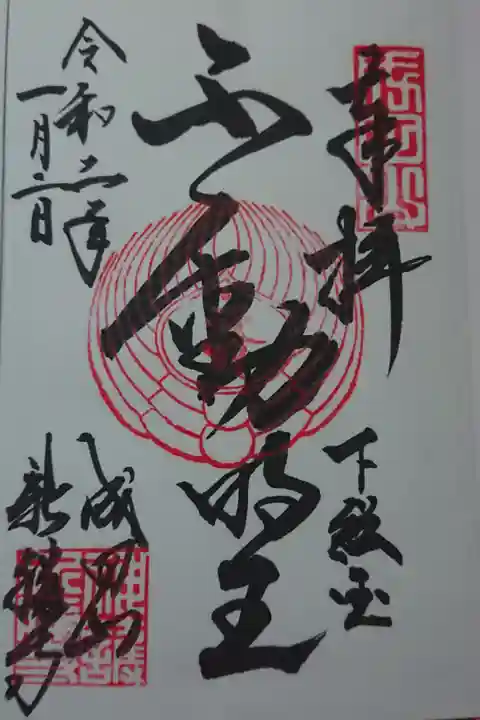 奉拝
下総国
不動明王
令和二年
一月二日
成田山
新勝寺